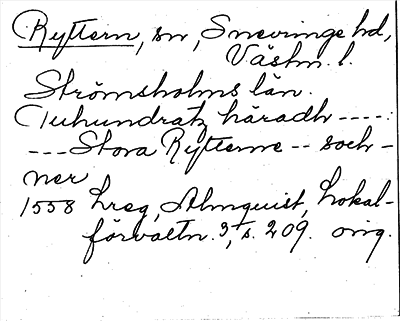 Ryttern, sn, Snevringe hd,
Västm. l.
Strömsholms län.
Tuhundratz häradh ----:
--- Stora Rytterne -- soch-
ner
1558 hreg, Almquist, Lokal-
förvaltn. 3, s. 209. orig.